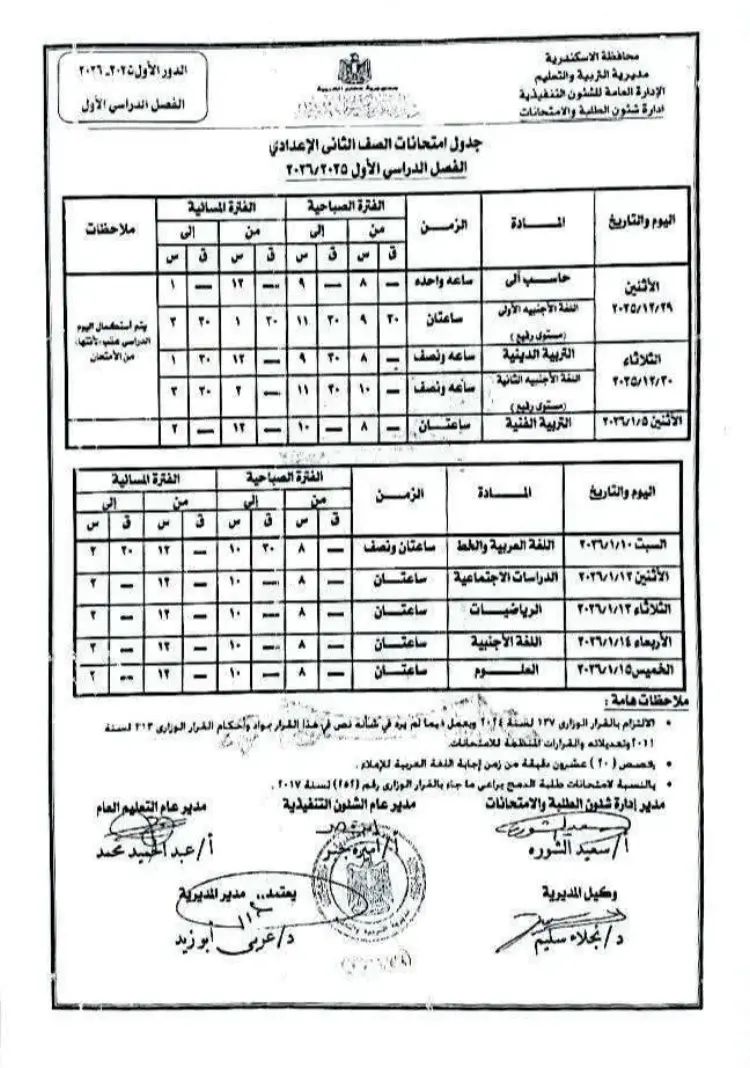 محافظة الاسكندرية
مديرية التربية والتعليم
الإدارة العامة للشئون التنفيذية
ادارة شئون الطلبة والامتحانات
جمهورية مصر العربية
الدور الأول ٢٠٢٥-٢٠٢٦
الفصل الدراسي الأول
جدول امتحانات الصف الثانى الإعدادي
الفصل الدراسي الأول ٢٠٢٦/٢٠٢٥
اليوم والتاريخ المادة الزمن الفترة الصباحية الفترة المسائية ملاحظات
من إلى من إلى
ق س ق س ق س ق س
الأثنين ٢٠٢٥/١٢/٢٩ حاسب ألى ساعه واحده — ٨ — ٩ — ١٢ — ١
اللغة الأجنبيه الأولى (مستوى رفيع) ساعتان ٣٠ ٩ ٣٠ ١١ ٣٠ ١ ٣٠ ٣
الثلاثاء ٢٠٢٥/١٢/٣٠ التربية الدينية ساعه ونصف — ٨ ٣٠ ٩ — ١٢ ٣٠ ١
اللغة الأجنبيه الثانية (مستوى رفيع) ساعه ونصف — ١٠ ٣٠ ١١ — ٢ ٣٠ ٣
الأثنين ٢٠٢٦/١/٥ التربية الفنية ساعتان — ٨ — ١٠ — ١٢ — ٢
يتم أستكمال اليوم
الدراسي عقب
من الأمتحان
اليوم والتاريخ المادة الزمن الفترة الصباحية الفترة المسائية
من إلى من إلى
ق س ق س ق س ق س
السبت ٢٠٢٦/١/١٠ اللغة العربية والخط ساعتان ونصف — ٨ ٣٠ ١٠ — ١٢ ٣٠ ٢
الأثنين ٢٠٢٦/١/١٢ الدراسات الاجتماعية ساعتان — ٨ — ١٠ — ١٢ — ٢
الثلاثاء ٢٠٢٦/١/١٣ الرياضيات ساعتان — ٨ — ١٠ — ١٢ — ٢
الأربعاء ٢٠٢٦/١/١٤ اللغة الأجنبية ساعتان — ٨ — ١٠ — ١٢ — ٢
الخميس ٢٠٢٦/١/١٥ العلوم ساعتان — ٨ — ١٠ — ١٢ — ٢
ملاحظات عامة :
• الالتزام بالقرار الوزارى ١٣٧ لسنة ٢٠٢٤ ويعمل فيما لم يرد في شأنه نص في هذا القرار بمواد وأحكام القرار الوزارى ٣١٣ لسنة
٢٠١١ وتعديلاته والقرارات المنظمة للامتحانات.
• يخصص (٢٠) عشرون دقيقة من زمن إجابة اللغة العربية للإملاء .
• بالنسبة لامتحانات طلبة الدمج يراعى ما جاء بالقرار الوزارى رقم (٢٥٢) لسنة ٢٠١٧ .
مدير إدارة شئون الطلبة والامتحانات مدير عام الشئون التنفيذية مدير عام التعليم العام
أ/ سعيد الشوره أ/ أميرة أ/ عبد الحميد محمد
وكيل المديرية يعتمد،، مدير المديرية
د/ نجلاء سليم د/ عربى أبو زيد